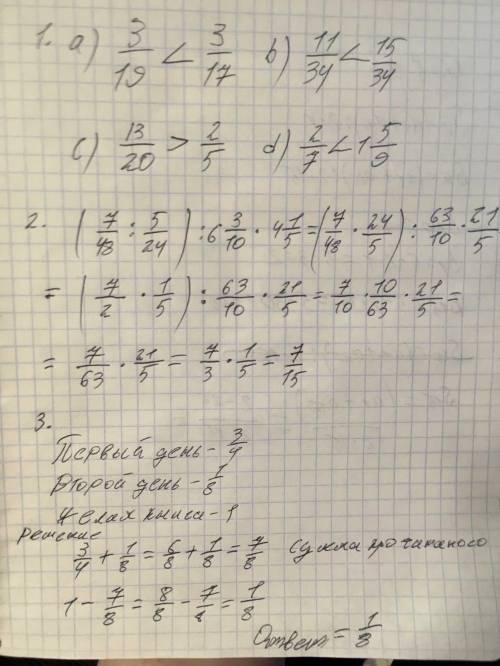 1. a) 3/19 < 3/17 b) 11/34 < 15/34
c) 13/20 > 2/5 d) 2/7 < 1 5/9
2. (7/48 : 5/24) : 6 3/10 · 4 1/5 = (7/48 · 24/5) : 63/10 · 21/5
= (7/2 · 1/5) : 63/10 · 21/5 = 7/10 · 10/63 · 21/5 =
= 7/63 · 21/5 = 7/3 · 1/5 = 7/15
3.
Первый день - 3/4
Второй день - 1/8
книга - 1
Решение
3/4 + 1/8 = 6/8 + 1/8 = 7/8
1 - 7/8 = 8/8 - 7/8 = 1/8
Ответ = 1/8